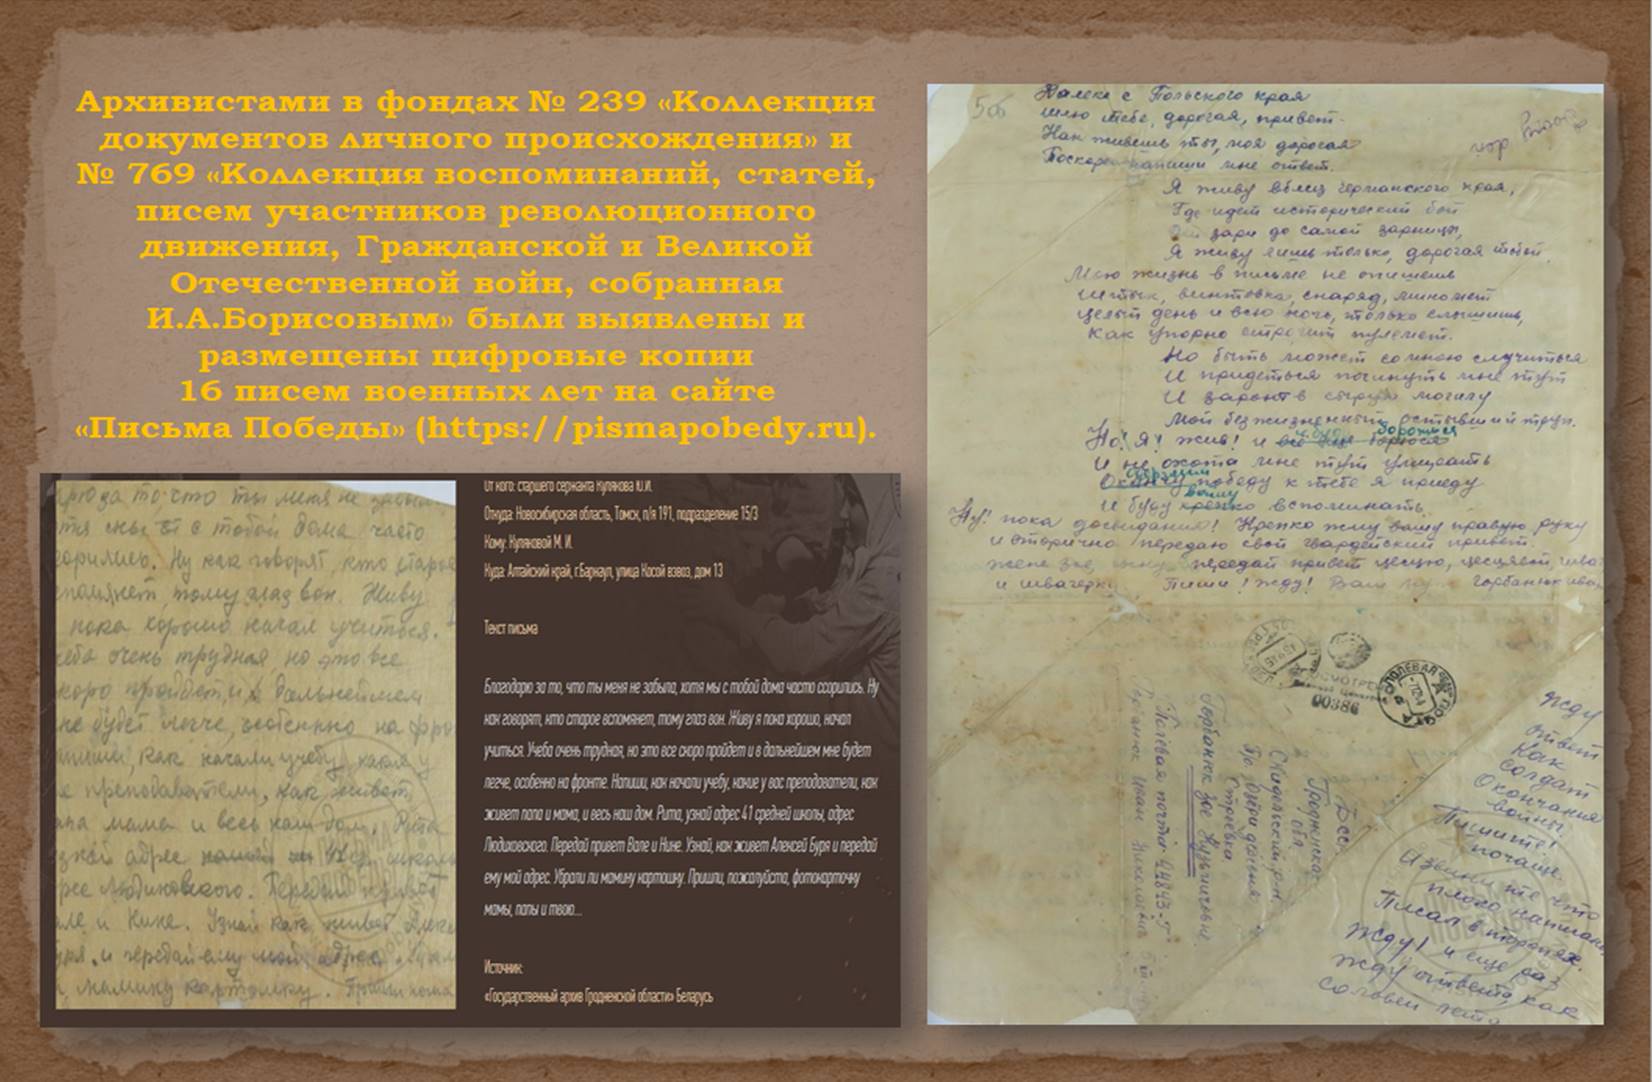 Архивистами в фондах № 239 «Коллекция
документов личного происхождения» и
№ 769 «Коллекция воспоминаний, статей,
писем участников революционного
движения, Гражданской и Великой
Отечественной войн, собранная
И.А.Борисовым» были выявлены и
размещены цифровые копии
16 писем военных лет на сайте
«Письма Победы» (https://pismapobedy.ru).
то что ты меня не
с тобой дома часто
Ну как говорят, кто старое
тому глаз вон. Живу
пока хорошо начал учиться.
очень трудная но это все
дальнейшем
не будет легче, особенно на
как начали учебу, какие у
преподаватели, как живет
мама и весь наш дом. Рита
адрес школы
Людиковского. Передай привет
и Нине. Узнай как живет
и передай ему мой адрес.
мамину картошку. Пришли
От кого: старшего сержанта Кулякова Ю.И.
Откуда: Новосибирская область, Томск, п/я 191, подразделение 15/3
Кому: Куляковой М. И.
Куда: Алтайский край, г.Барнаул, улица Косой взвоз, дом 13
Текст письма
Благодарю за то, что ты меня не забыла, хотя мы с тобой дома часто ссорились. Ну
как говорят, кто старое вспомянет, тому глаз вон. Живу я пока хорошо, начал
учиться. Учеба очень трудная, но это все скоро пройдет и в дальнейшем мне будет
легче, особенно на фронте. Напиши, как начали учебу, какие у вас преподаватели, как
живет папа и мама, и весь наш дом. Рита, узнай адрес 41 средней школы, адрес
Людиковского. Передай привет Вале и Нине. Узнай, как живет Алексей Буря и передай
ему мой адрес. Убрали ли мамину картошку. Пришли, пожалуйста, фотокарточку
мамы, папы и твою...
Источник:
«Государственный архив Гродненской области» Беларусь
Далеко с Польского края
шлю тебе, дорогая, привет.
Как живешь ты, моя дорогая
Поскорей напиши мне ответ.
Я живу вблиз германского края,
Где идет исторический бой
От зари до самой зарницы,
Я живу лишь только, дорогая тобой.
Мою жизнь в письме не опишешь
Штык, винтовка, снаряд, миномет
Целый день и всю ночь, только слышишь,
Как упорно строчит пулемет.
Но быть может со мною случиться
И придеться погинуть мне тут
И зароют в сырую могилу
Мой безжизненный остывший труп.
Но! Я! жив! и
И не охота мне тут умирать
победу к тебе я приеду
И буду крепко вспоминать.
Ну! пока досвидания! Крепко жму вашу правую руку
и вторично передаю свой гвардейский привет.
передай привет
и швагерке Пиши! Жду! Ваш
00386
БССР
Гродненская
обл.
Скидельский р-н,
Полевая почта 44843-Г
Жду
ответ
Как
солдат
Окончания
войны.
Пишите!
почаще.
Извините что
плохо написано,
Писал в торопях.
Жду! и еще раз
жду ответа, как
соловей лета